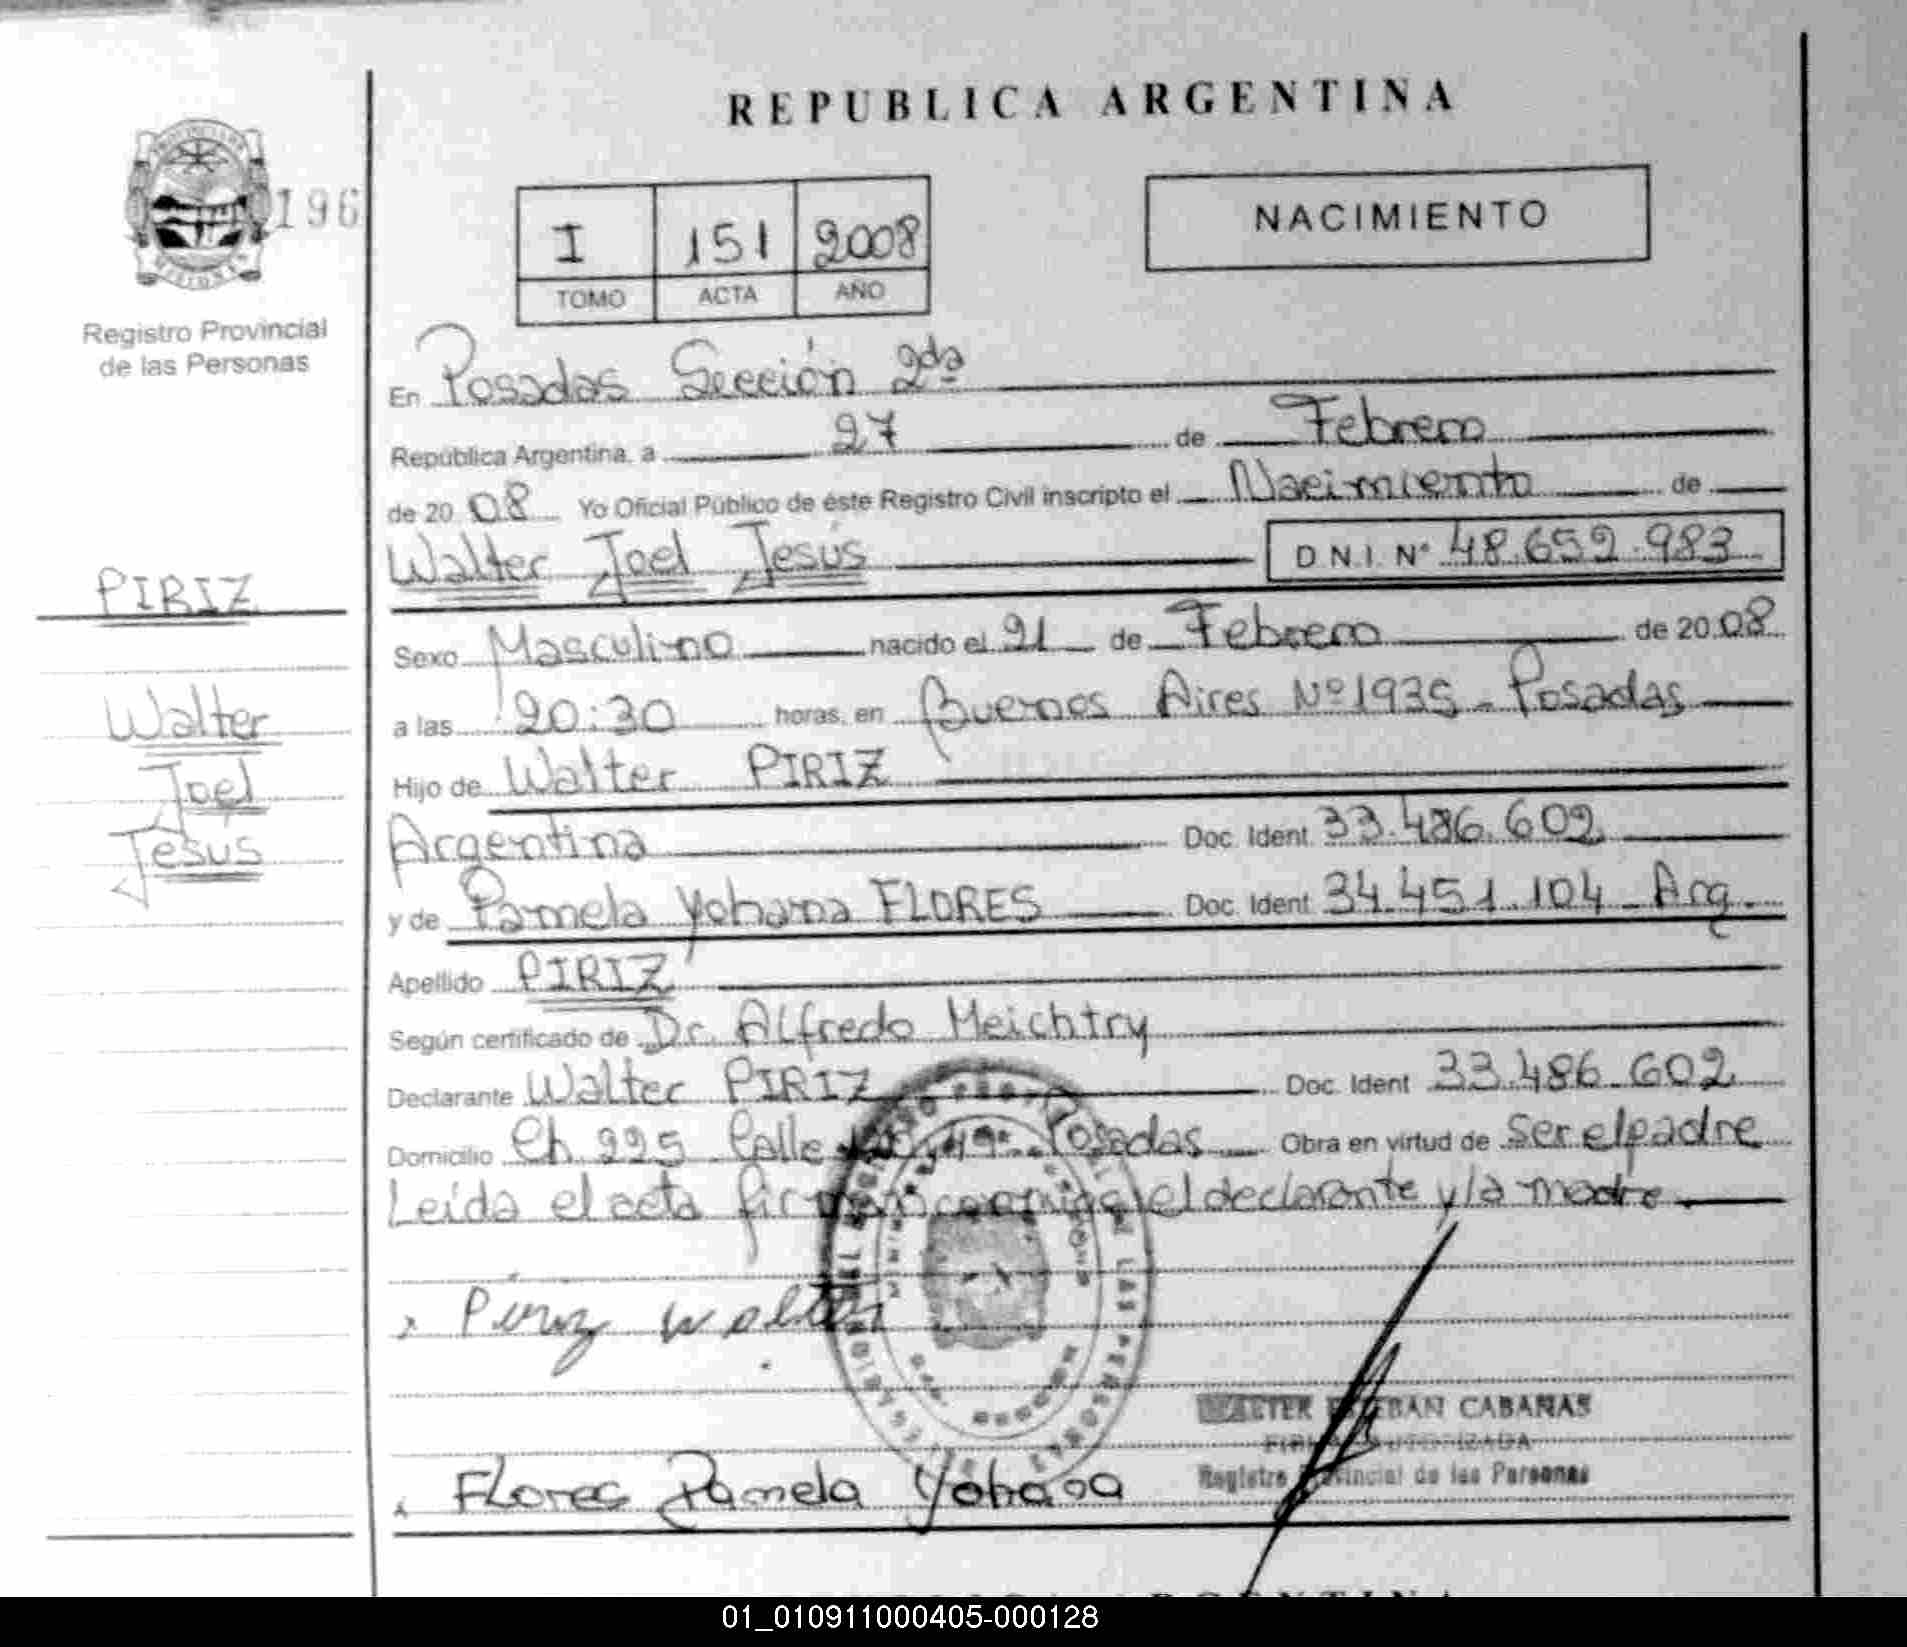 REPUBLICA ARGENTINA
196
I 151 2008
TOMO ACTA AÑO
NACIMIENTO
Registro Provincial
de las Personas
En Posadas Sección 2da
República Argentina, a 27 de Febrero
de 20 08 Yo Oficial Público de éste Registro Civil inscripto el Nacimiento de
Walter Joel Jesús D.N.I. Nº 48.659.983
PIRIZ
Walter
Joel
Jesús
Sexo Masculino nacido el 21 de Febrero de 20 08
a las 20:30 horas, en Buenos Aires Nº 1935 - Posadas
Hijo de Walter PIRIZ
Argentina Doc. Ident 33.486.602
y de Pamela Yohana FLORES Doc. Ident 34.451.104 Arg.
Apellido PIRIZ
Según certificado de Dr. Alfredo Meichtry
Declarante Walter PIRIZ Doc. Ident 33.486.602
Domicilio Ch 225 Calle Posadas Obra en virtud de Ser el padre
Leída el acta firman conmigo el declarante y la madre.
Piriz Walter
WALTER ESTEBAN CABAÑAS
FIRMA AUTORIZADA
Registro Provincial de las Personas
Flores Pamela Yohana
01_010911000405-000128